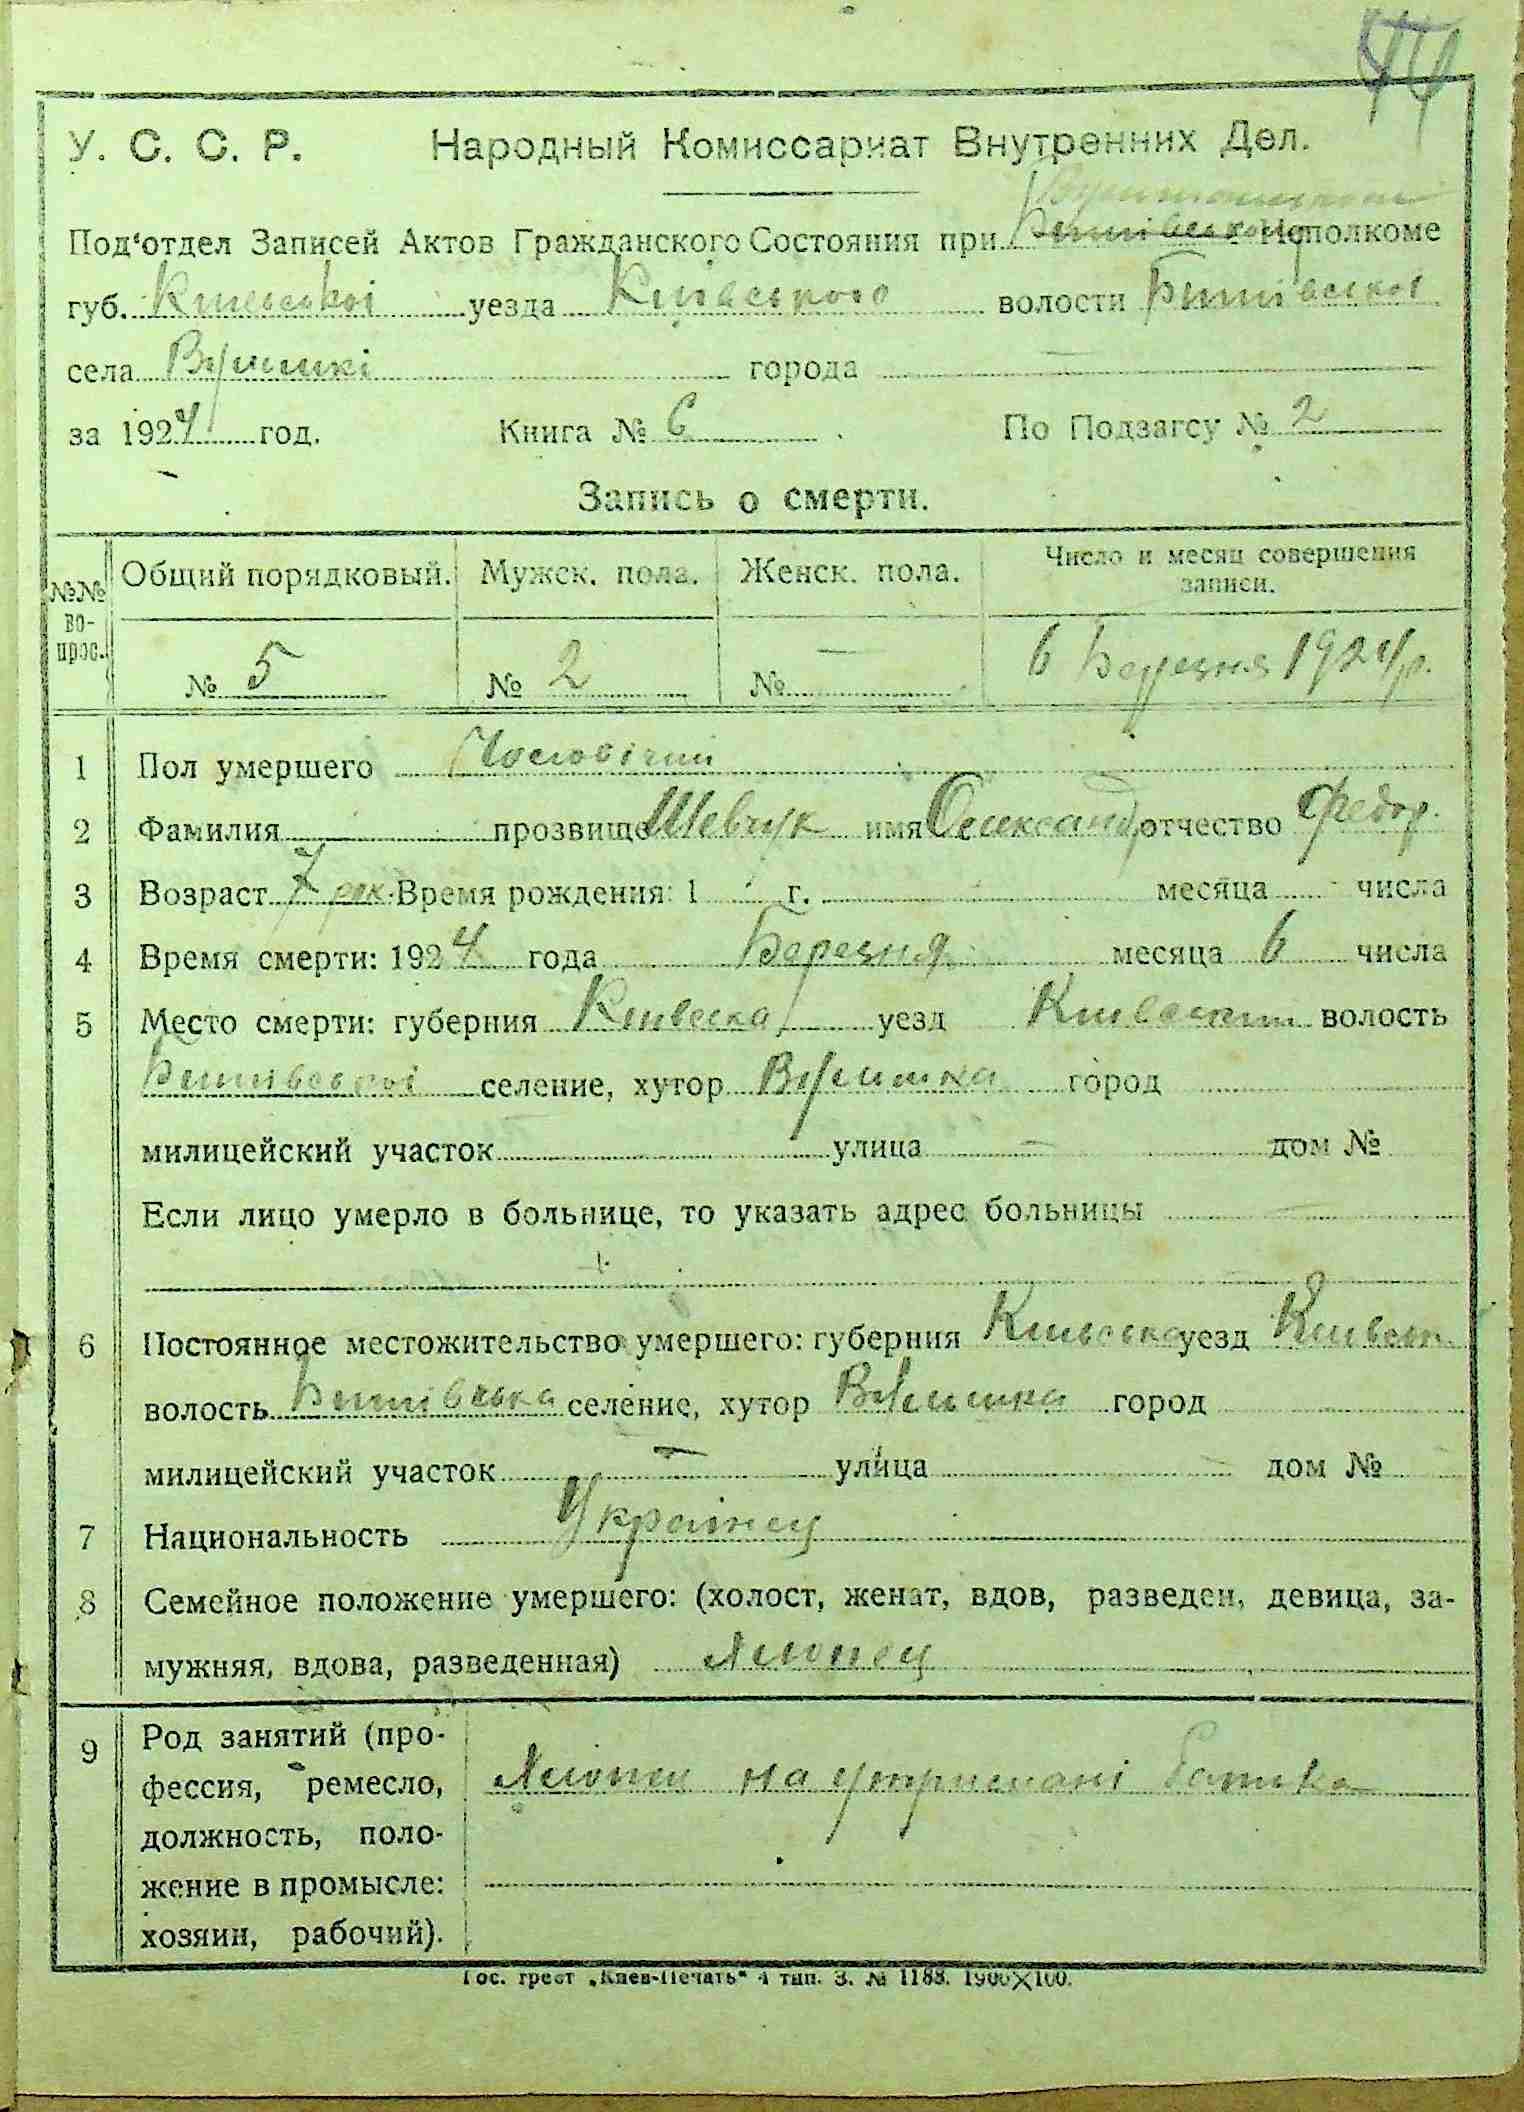 У. С. С. Р. Народный Комиссариат Внутренних Дел.
Под‘отдел Записей Актов Гражданского Состояния при Бишівському Исполкоме
губ. Киівськоі уезда Киівського волости Бишівськоі
села Вулшкі города —
за 1924 год. Книга № 6 По Подзагсу № 2
Запись о смерти.
№№ вопрос. Общий порядковый. Мужск. пола. Женск. пола. Число и месяц совершения записи.
№ 5 № 2 № — 6 Березня 1924 р.
1 Пол умершего Чоловічий
2 Фамилия прозвище Шевчук имя Олександ. отчество Федор.
3 Возраст 7 рок. Время рождения: 1 г. месяца - числа
4 Время смерти: 1924 года Березня месяца 6 числа
5 Место смерти: губерния Киівска уезд Киівский волость
Бишівськоі селение, хутор город
милицейский участок улица — дом №
Если лицо умерло в больнице, то указать адрес больницы —
6 Постоянное местожительство умершего: губерния Киівська уезд Киівськ.
волость Бишівська селение, хутор город
милицейский участок — улица — дом №
7 Национальность Украінец
8 Семейное положение умершего: (холост, женат, вдов, разведен, девица, за-
мужняя, вдова, разведенная) хлопец
9 Род занятий (про-
фессия, ремесло, хлопец на утриманні батька
должность, поло-
жение в промысле:
хозяин, рабочий).
Гос. трест „Киев-Печать“ 4 тип. З. № 1188. 1900×100.